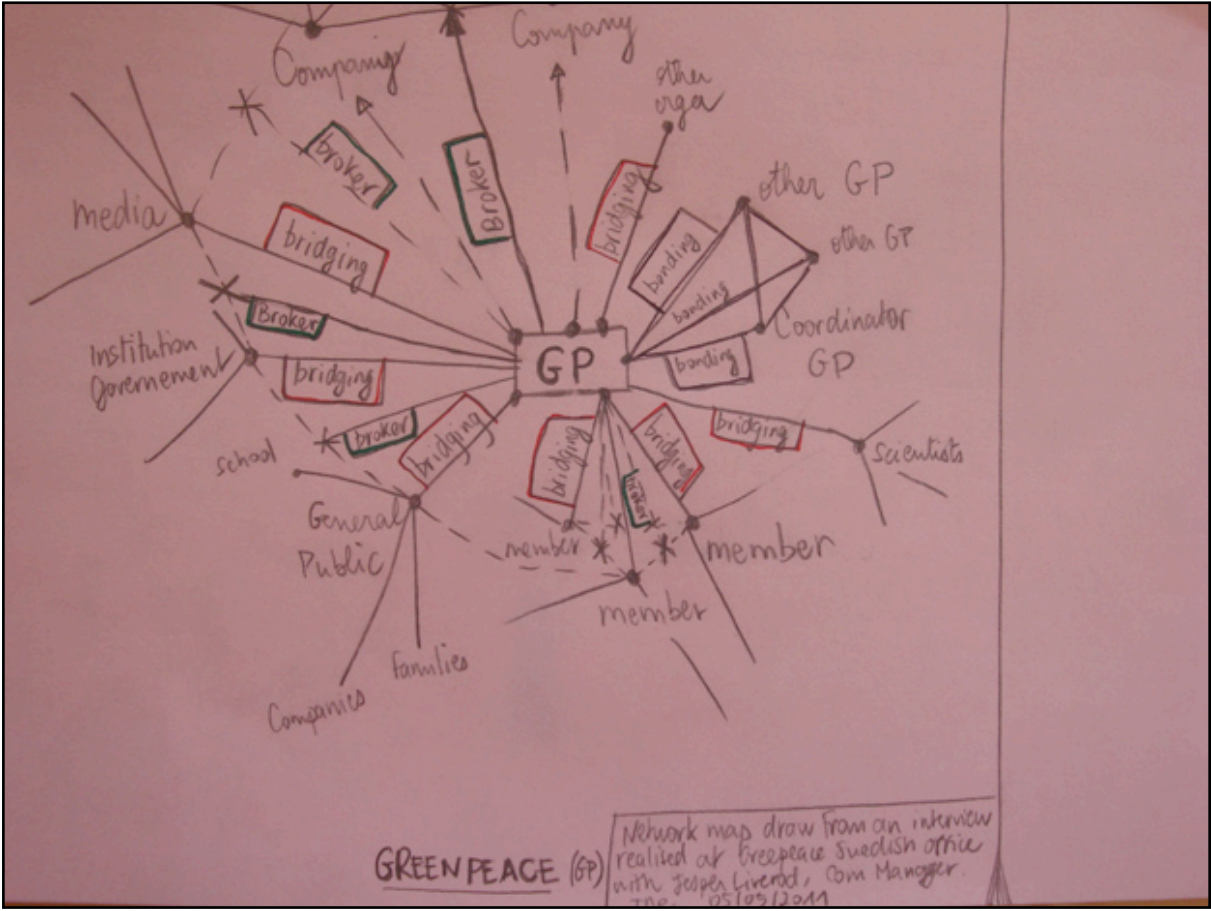 Company
Company
other
orga
broker
Broker
bridging
other GP
media
bridging
bonding
other GP
bonding
Broker
Coordinator
GP
GP
Institution
Governement
bridging
bonding
broker
bridging
bridging
bridging
bridging
scientists
school
broker
General
Public
member
member
member
families
Companies
GREENPEACE (GP)
Network map draw from an interview
realised at Greepeace Swedish office
with Jesper Liverod, Com Manager.
THE 05/05/2011